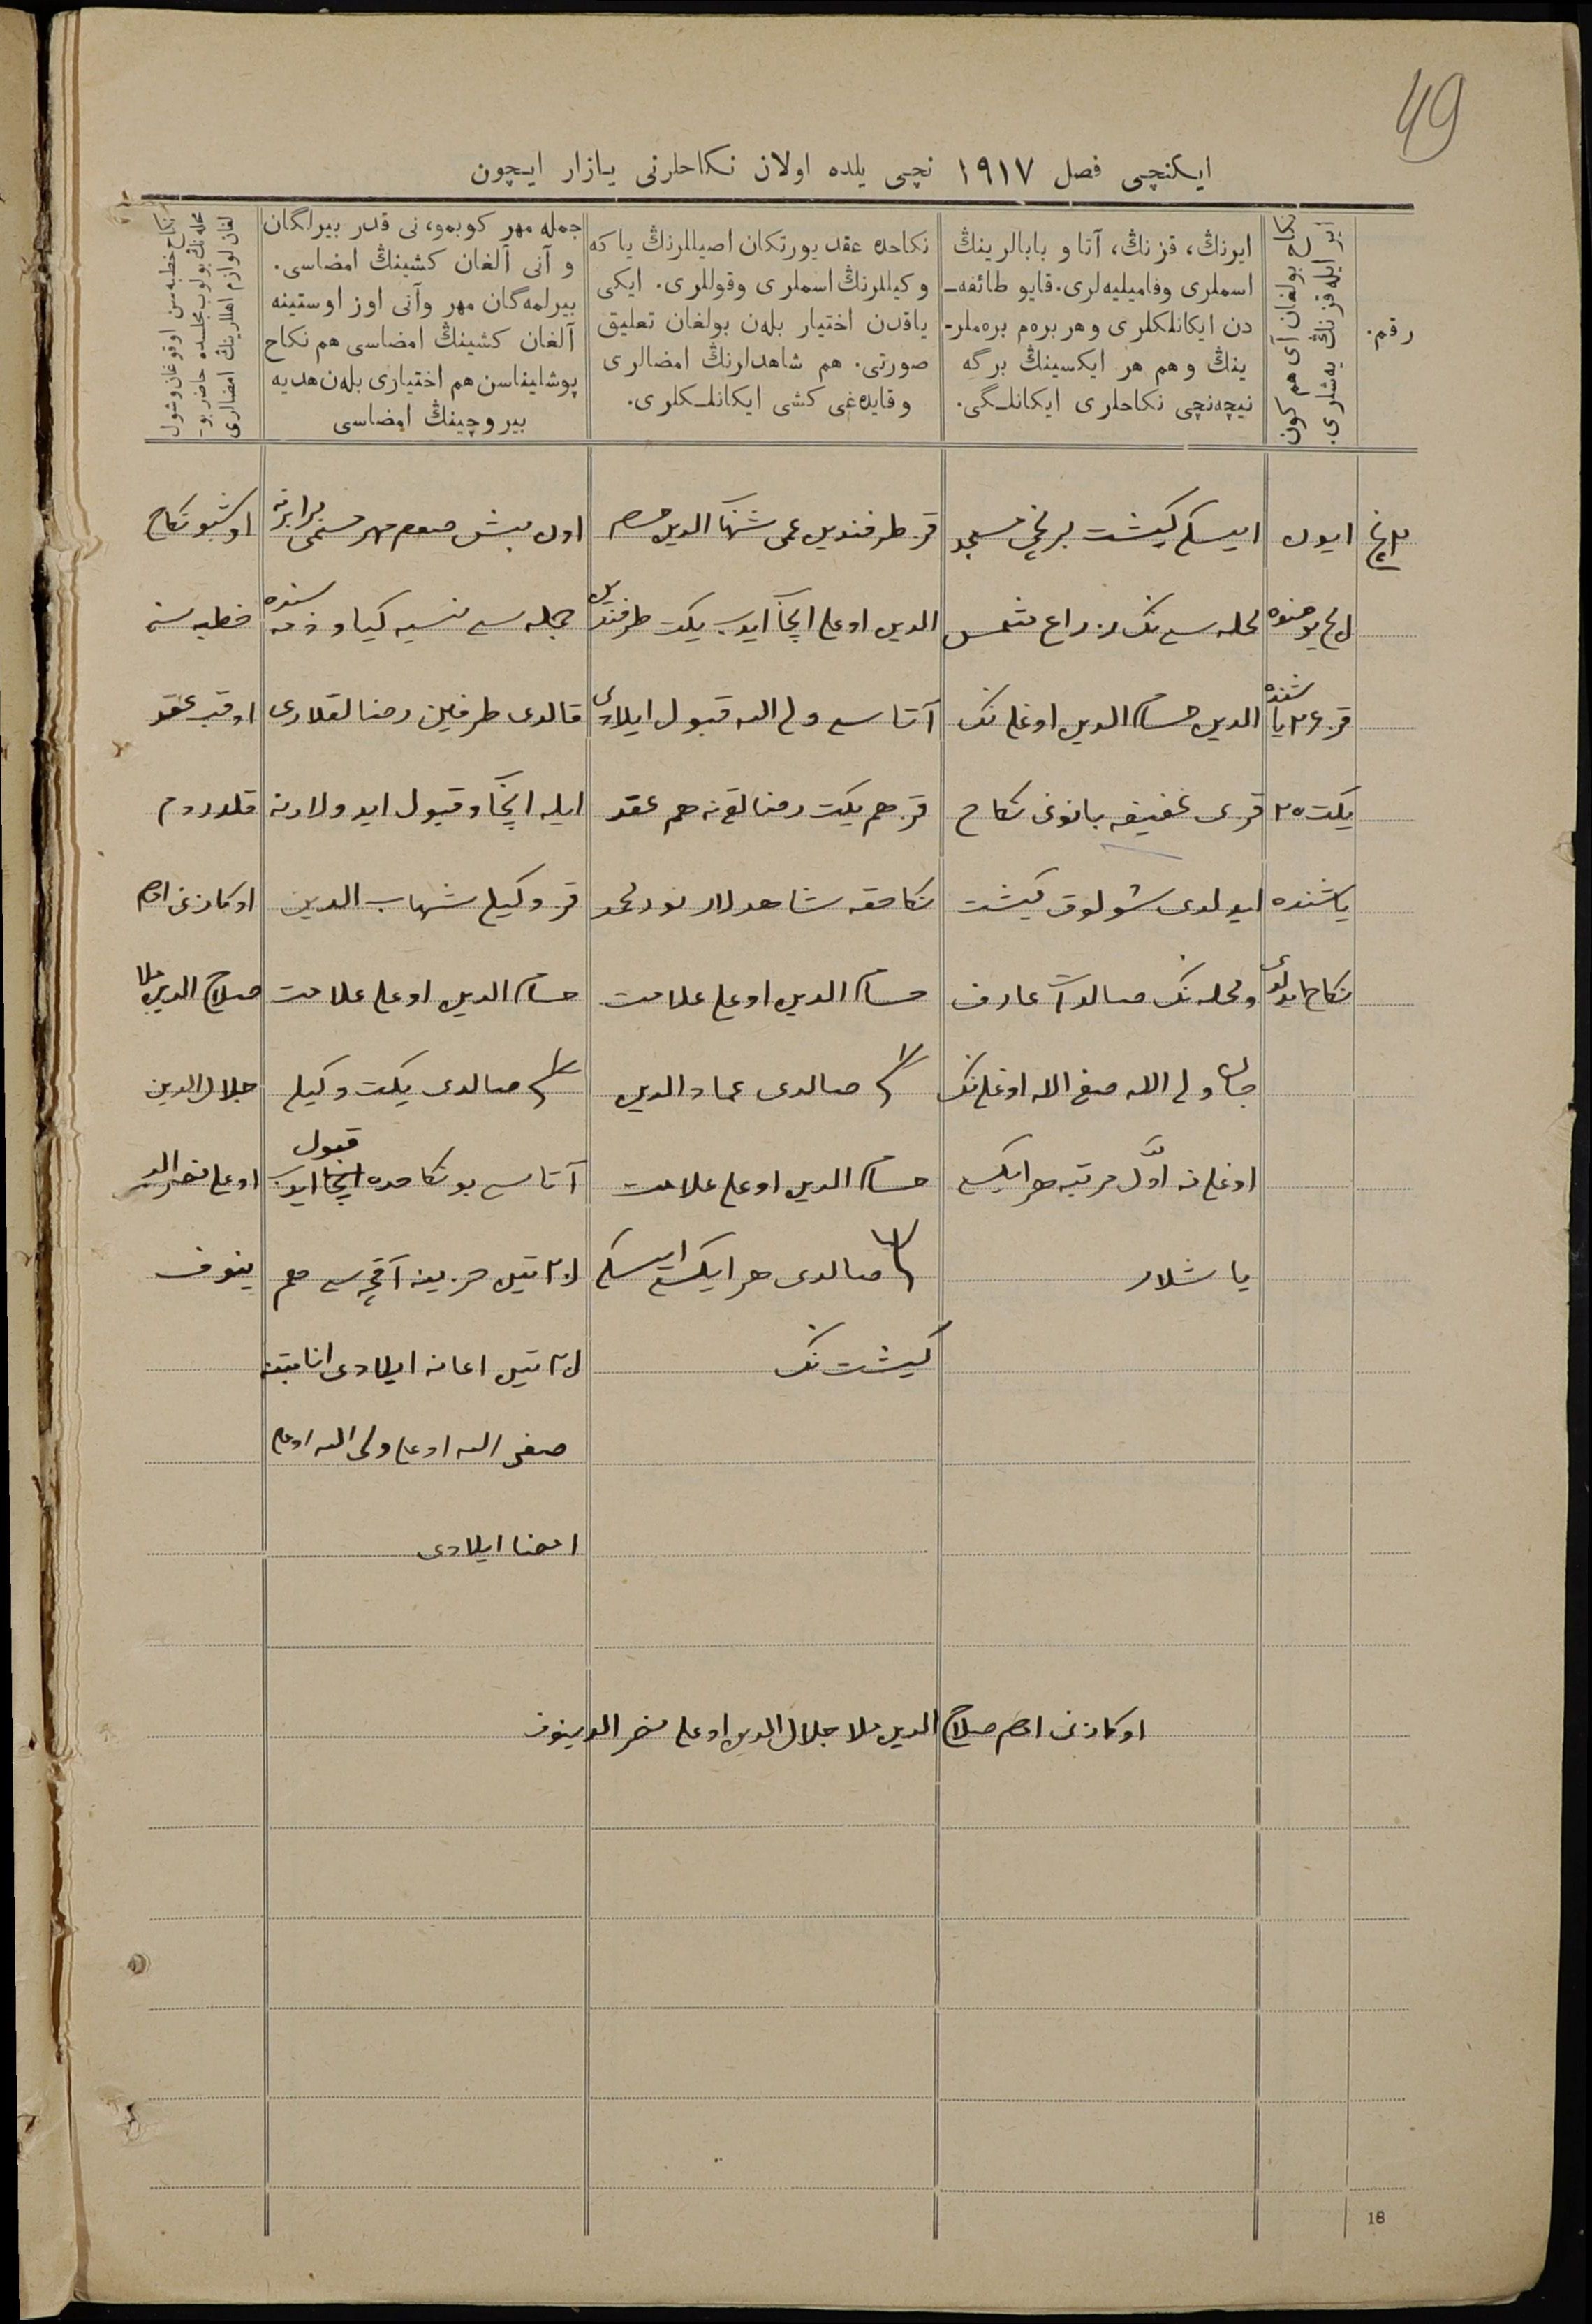 49
ایکنچی فصل ١٩١٧ نچی یلده اولان نکاحلرنی یازار ایچون
رقم.
نکاح بولغان آی هم کون
ایر ایله قزنڭ یەشلری.
ایرنڭ، قزنڭ، آتا و بابالرینڭ
اسملری وفامیلیەلری. قایو طائفە‌ـ
دن ایکانلکلری وهر برەم برەملر‌ـ
ینڭ وهم هر ایکسینڭ برگه
نیچەنچی نکاحلری ایکانلـگی.
نکاحده عقد یورتکان اصیللرنڭ یا که
وکیللرنڭ اسملری وقوللری. ایکی
یاقدن اختیار بلەن بولغان تعلیق
صورتی. هم شاهدلرنڭ امضالری
وقایدەغی کشی ایکانلـکلری.
جمله مهر کوبمو، نی قدر بیرلگان
و آنی آلغان کشینڭ امضاسی.
بیرلمەگان مهر وآنی اوز اوستینه
آلغان کشینڭ امضاسی هم نکاح
پوشلیناسن هم اختیاری بلەن هدیه
بیروچینڭ امضاسی
نکاح خطبەسن اوقوغان وشول
محلەنڭ بولوب مجلسده حاضر بو‌ـ
لغان لوازم اهللرینڭ امضالری
ایون
قز
یکت ٢٥
یاشنده
نکاح
ایسکی کیشت برنچی مسجد
محله سی نڭ شمس
الدین حسام الدین اوغلی نڭ
قزی عفیفه بانونی نکاح
ایولدی شولوق کیشت
ومحله نڭ عارف
جان ولی الله صفی الله اوغلی نڭ
اوغلی نه اوّل مرتبه هر ایکسی
یاشلار
قز طرفندین عمی شهاب الدین حسام
الدین اوغلی ایجاب ایدوب یکت طرفندین
آتاسی ولی الله قبول ایلادی
قز هم یکت رضالقی نه هم عقد
نکاحقه شاهدلار نورمحمد
حسام الدین اوغلی علامت
صالدی عماد الدین
حسام الدین اوغلی علامت
صالدی هر ایکسی ایسکی
کیشت نڭ
اون بیش صوم مهر مسمی برابرینه
جمله سی نسیه کیاو ذمه سنده
قالدی طرفین رضالقلاری
ایله ایجاب و قبول ایدولارینه
قز وکیلی شهاب الدین
حسام الدین اوغلی علامت
صالدی یکت وکیلی
آتاسی بو نکاحده قبول
٢٠ تین خزینه آقچه سی هم
تین اعانه ایلادی
صفی الله اوغلی ولی الله اوغلی
امضا ایلادی
اوشبو نکاح
خطبه سنی
اوقوب عقد
قلدردم
اوکازنی امام
صلاح الدین ملا
جلال الدین
اوغلی فخرالد
ینوف
اوکازنی امام صلاح الدین ملا جلال الدین اوغلی فخر الدینوف
18